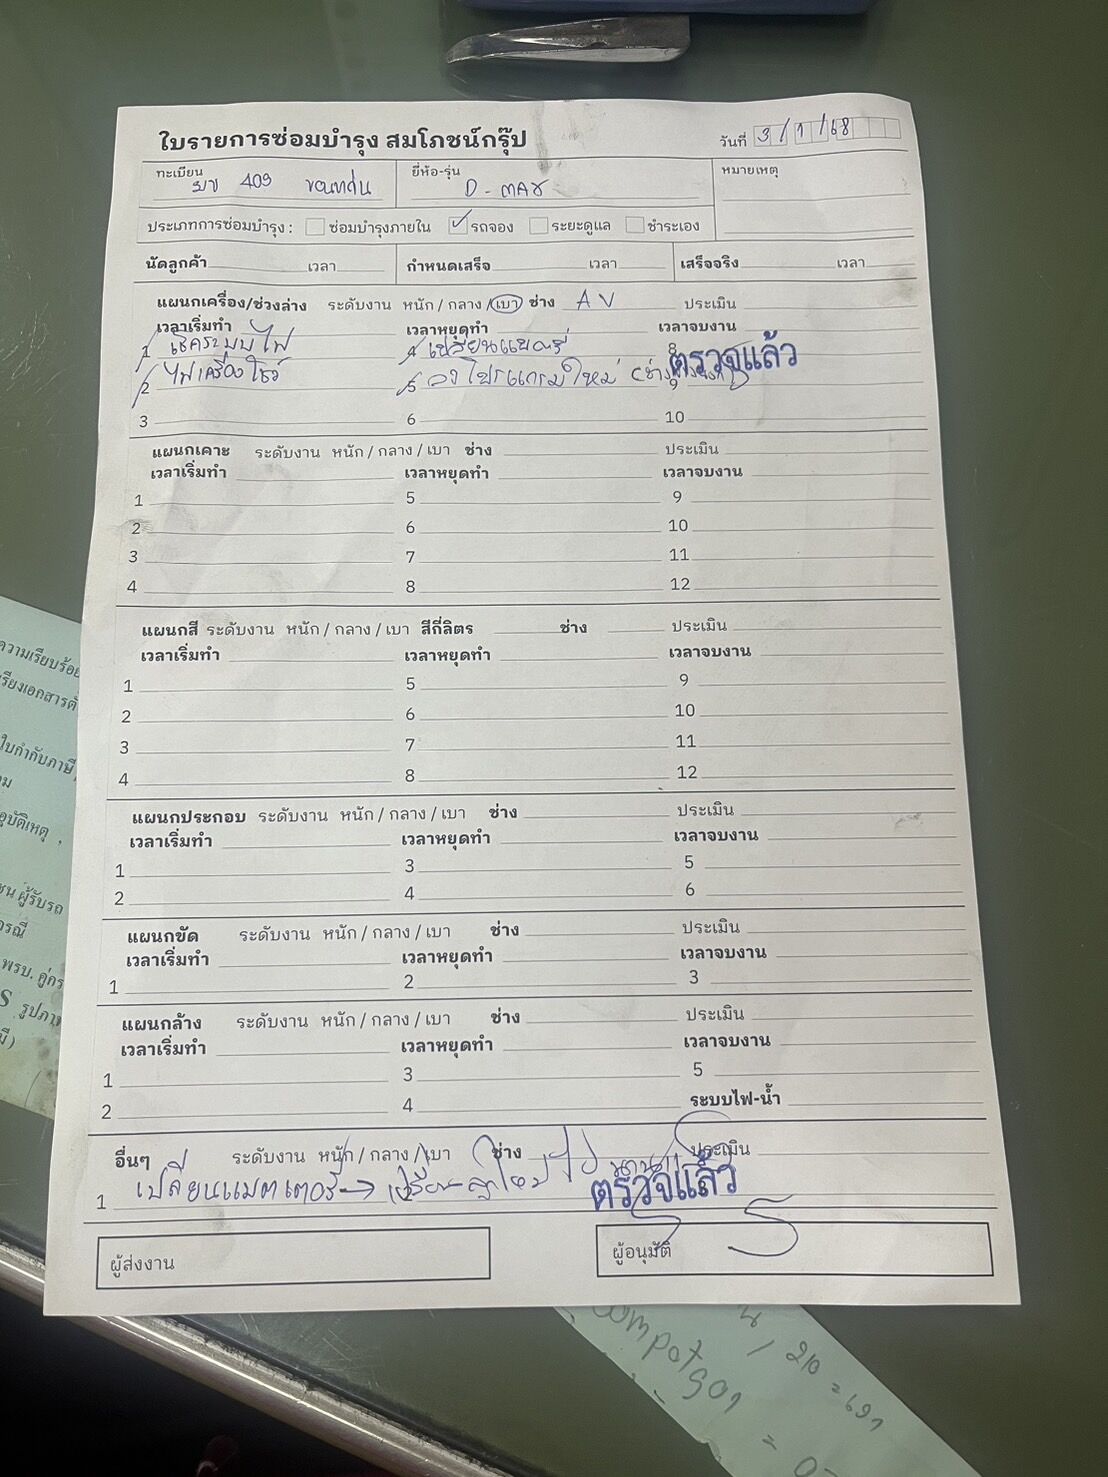 ใบรายการซ่อมบำรุง สมโภชน์กรุ๊ป
วันที่ 3/1/68
ทะเบียน ยี่ห้อ-รุ่น หมายเหตุ
409 ขอนแก่น D-MAX
ประเภทการซ่อมบำรุง : ซ่อมบำรุงภายใน ✓ รถจอง ระยะดูแล ชำระเอง
นัดลูกค้า เวลา กำหนดเสร็จ เวลา เสร็จจริง เวลา
แผนกเครื่อง/ช่วงล่าง ระดับงาน หนัก / กลาง / เบา ช่าง AV ประเมิน
เวลาเริ่มทำ เวลาหยุดทำ เวลาจบงาน
1 เช็คระบบไฟ 4 เปลี่ยนแบตรี่ 8 ตรวจแล้ว
2 ไฟเครื่องโชว์ 5 ลงโปรแกรมใหม่ 9
3 6 10
แผนกเคาะ ระดับงาน หนัก / กลาง / เบา ช่าง ประเมิน
เวลาเริ่มทำ เวลาหยุดทำ เวลาจบงาน
1 5 9
2 6 10
3 7 11
4 8 12
แผนกสี ระดับงาน หนัก / กลาง / เบา สีกี่ลิตร ช่าง ประเมิน
เวลาเริ่มทำ เวลาหยุดทำ เวลาจบงาน
1 5 9
2 6 10
3 7 11
4 8 12
แผนกประกอบ ระดับงาน หนัก / กลาง / เบา ช่าง ประเมิน
เวลาเริ่มทำ เวลาหยุดทำ เวลาจบงาน
1 3 5
2 4 6
แผนกขัด ระดับงาน หนัก / กลาง / เบา ช่าง ประเมิน
เวลาเริ่มทำ เวลาหยุดทำ เวลาจบงาน
1 2 3
แผนกล้าง ระดับงาน หนัก / กลาง / เบา ช่าง ประเมิน
เวลาเริ่มทำ เวลาหยุดทำ เวลาจบงาน
1 3 5
2 4 ระบบไฟ-น้ำ
อื่นๆ ระดับงาน หนัก / กลาง / เบา ช่าง ประเมิน
1 เปลี่ยนแบตเตอรี่ → เปลี่ยนลูกใหม่ ตรวจแล้ว
ผู้ส่งงาน ผู้อนุมัติ
ความเรียบร้อย
เรียงเอกสารตั
ใบกำกับภาษี
อุบัติเหตุ ,
ชน ผู้รับรถ
กรณี
พรบ. คู่กร
S รูปภา
210 = 691